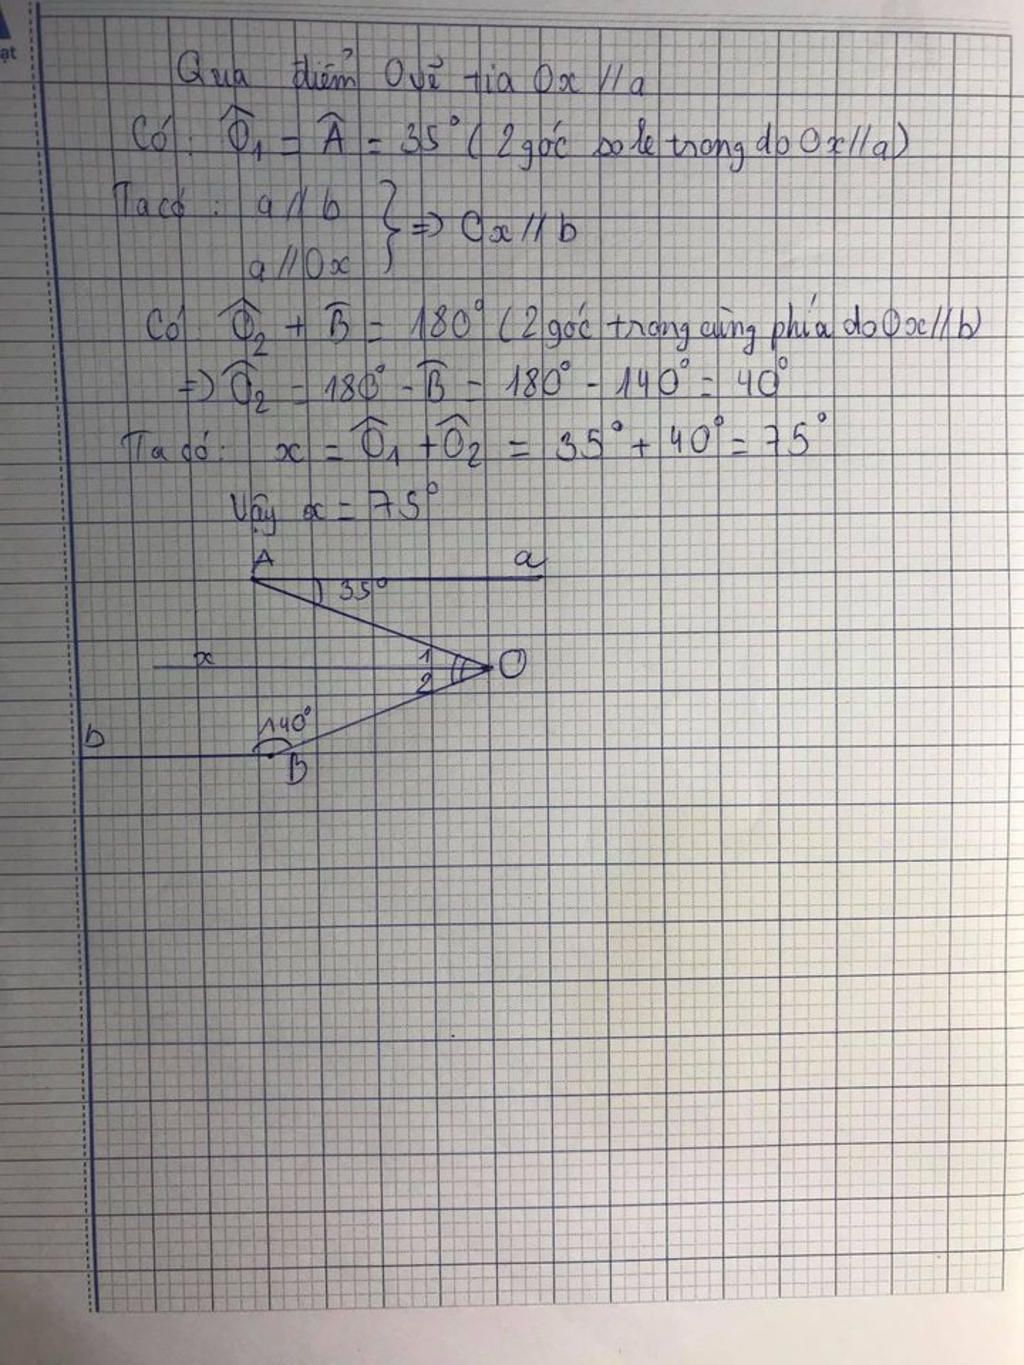 ạt
Qua điểm O vẽ tia Ox // a
Có: Ô₁ = Â = 35° (2 góc so le trong do Ox // a)
Ta có: a // b
a // Ox } => Ox // b
Có Ô₂ + B̂ = 180° (2 góc trong cùng phía do Ox // b)
=> Ô₂ = 180° - B̂ = 180° - 140° = 40°
Ta có: x = Ô₁ + Ô₂ = 35° + 40° = 75°
Vậy x = 75°
A a
35°
x 1 O
2
140°
b
B